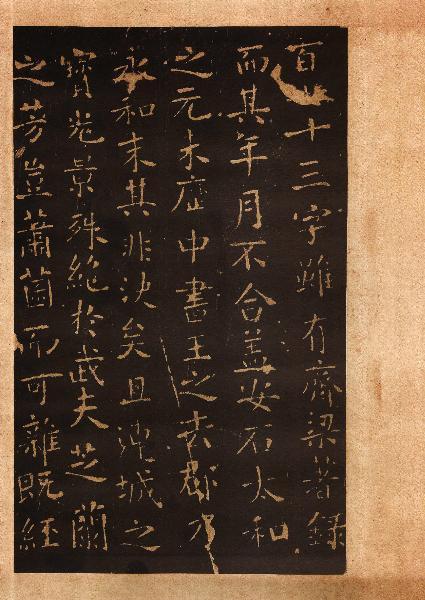 百十三字雖有齊梁著錄
而其年月不合蓋安石太和
之元未應中書王之去郡乃
永和末其非決矣且連城之
寶光景殊絶於武夫芝蘭
之芳豈蕭茵而可雜既經